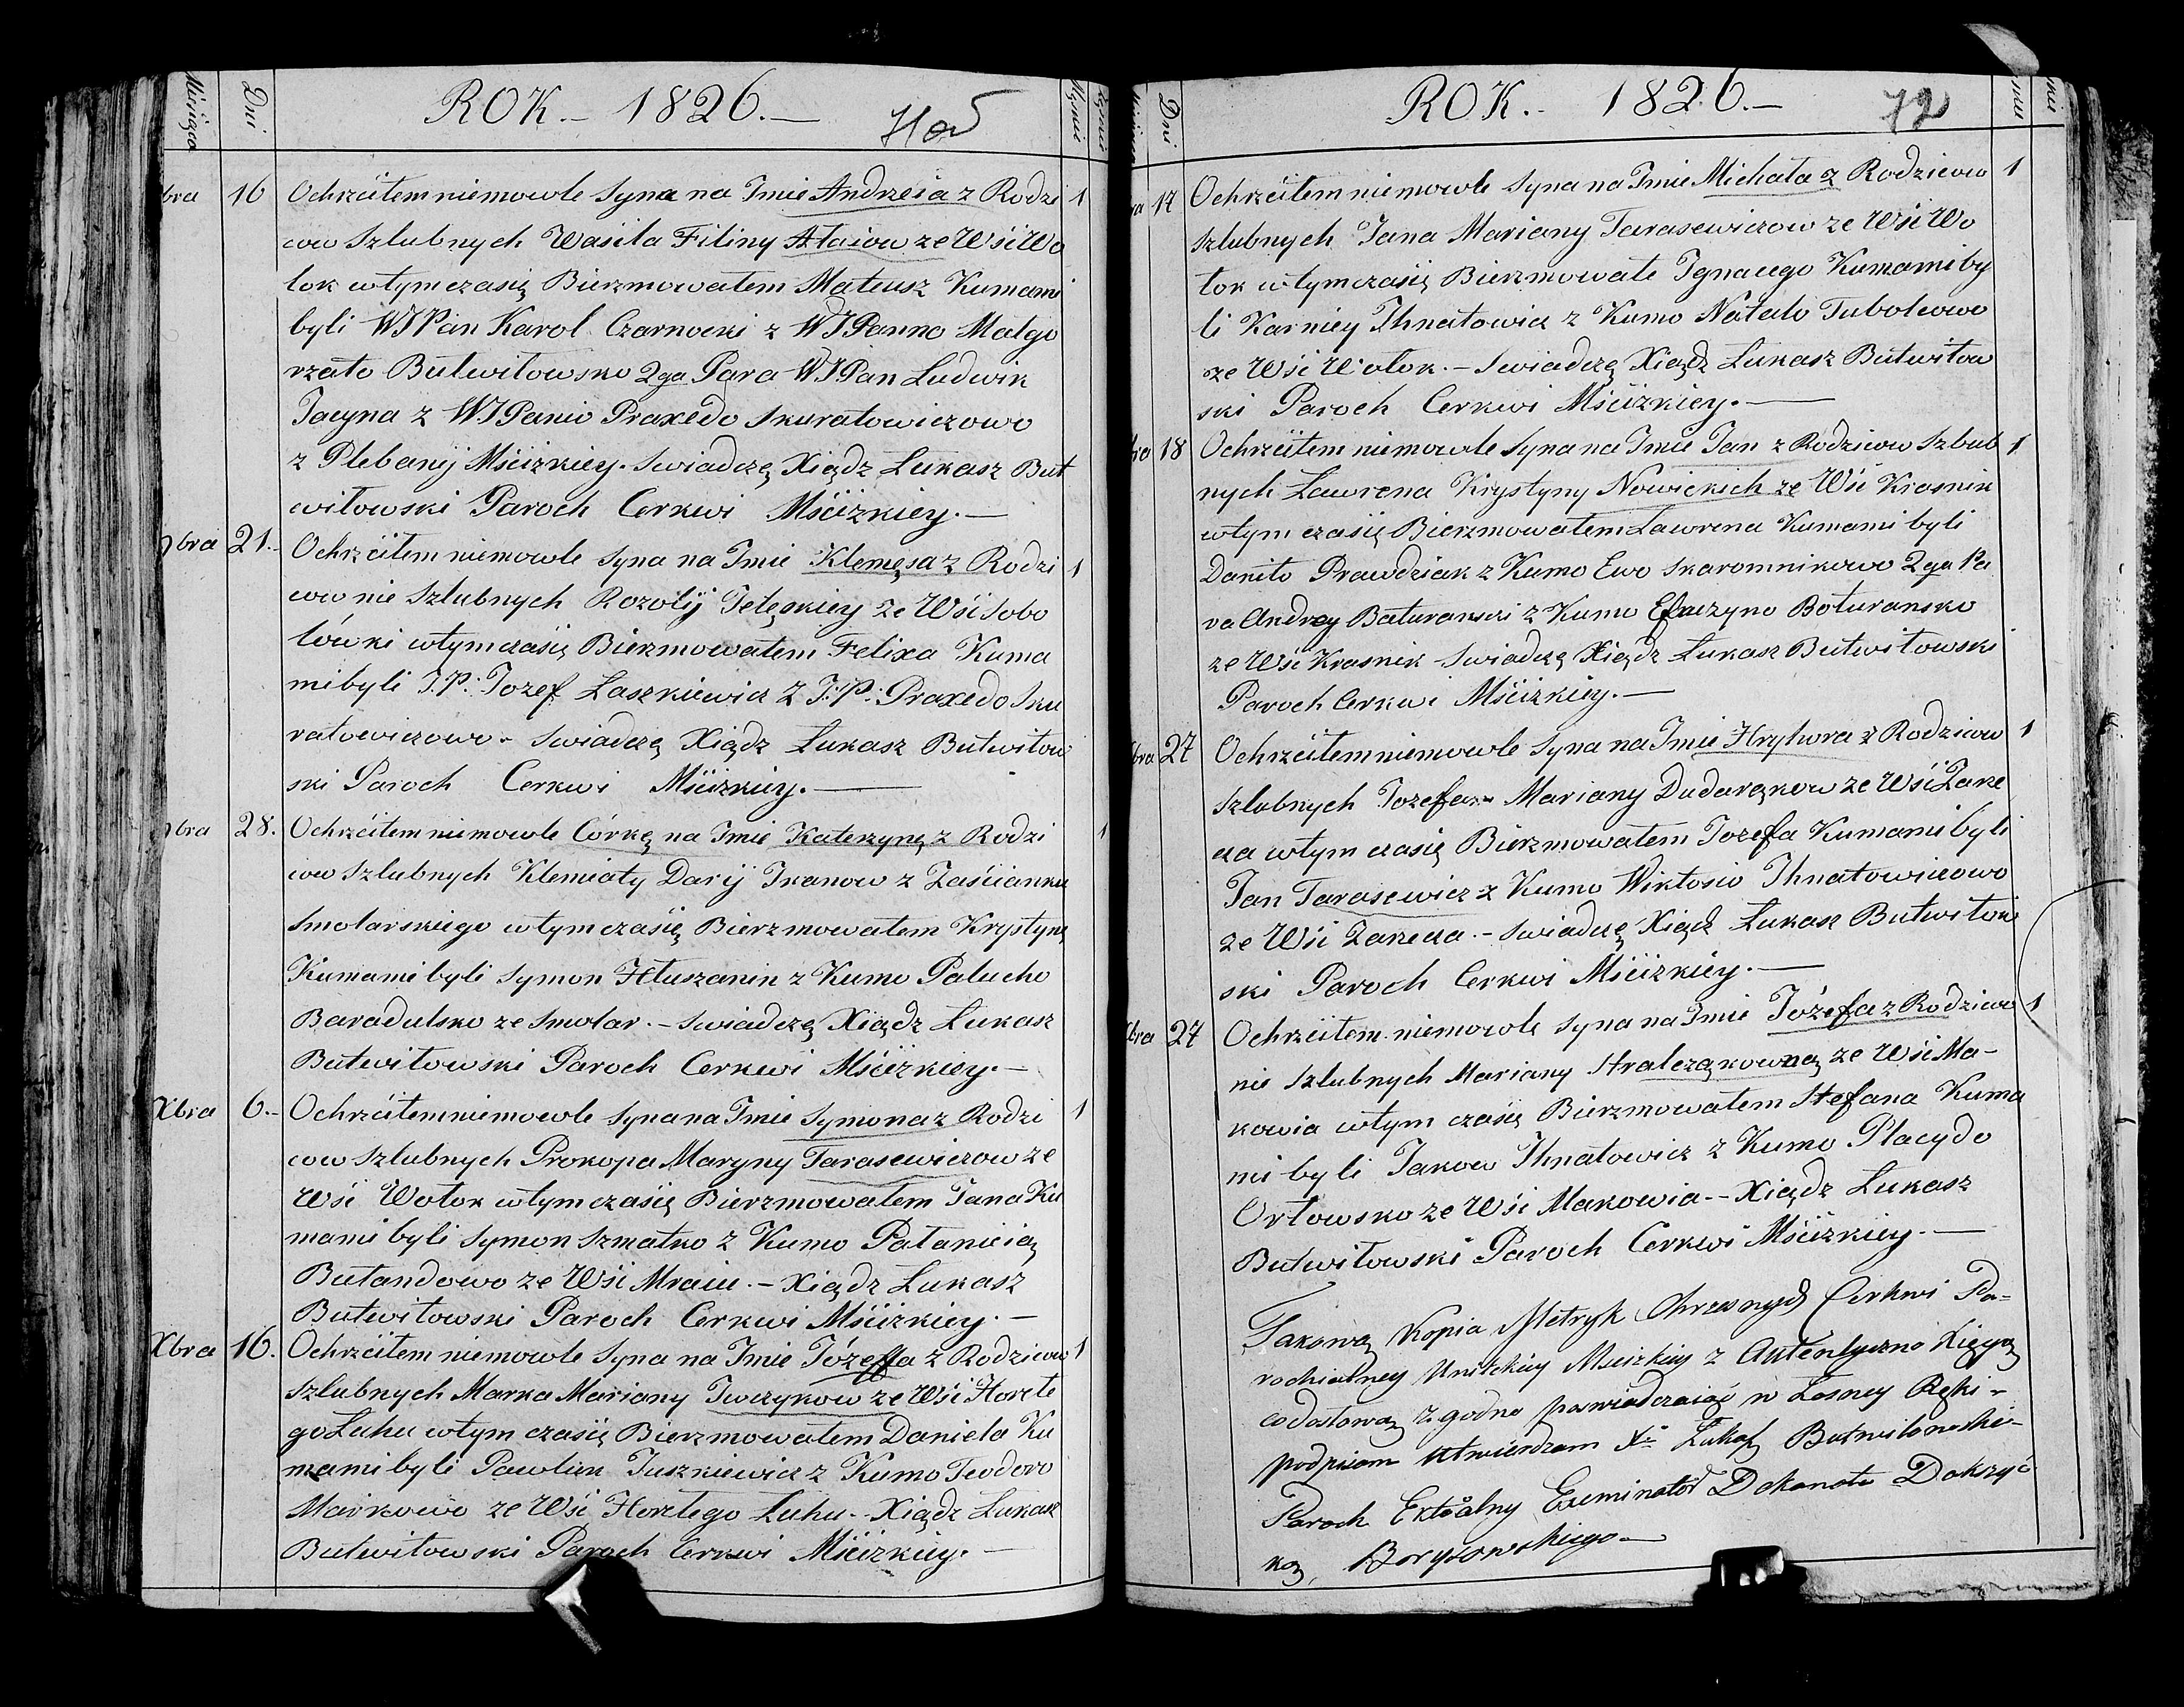 Miesiąca Dni ROK.- 1826.-
bra 16 Ochrzciłem niemowle Syna na Jmie Andrzeia z Rodzi 1
cow Szlubnych Wasila Filiny Ataiow ze Wsi Wo
łok w tym czasię Bierzmowałem Mateusz Kumami
byli WJPan Karol Czarnocki z WJPanno Małgo
rzato Butwiłowsko 2ga Para WJPan Ludwik
Jacyna z WJPanio Praxedo Skuratowiczowo
z Plebanij Mścizkiey. Swiadczę Xiądz Łukasz But
wiłowski Paroch Cerkwi Mścizkiey.-
9bra 21.- Ochrzciłem niemowle Syna na Jmie Klemęsa z Rodzi 1
cow nie Szlubnych Rozolij Telęskiey ze Wsi Sobo
lówki w tym czasię Bierzmowałem Felixa Kuma
mi byli J:P: Jozef Laszkiewicz z J:P: Praxedo Sku
ratowiczowo - Swiadczę Xiądz Łukasz Butwiłow
ski Paroch Cerkwi Mścizkiey.-
9bra 28. Ochrzciłem niemowle Córkę na Jmie Katerzynę z Rodzi 1
cow Szlubnych Klemiaty Darij Jkanow z Zaścianku
Smolarskiego w tym czasię Bierzmowałem Krystynę
Kumami byli Symon Hłuszanin z Kumo Palucho
Baradulsko ze Smolar.- Swiadczę Xiądz Łukasz
Butwiłowski Paroch Cerkwi Mścizkiey.-
Xbra 6.- Ochrzciłem niemowle Syna na Jmie Symona z Rodzi 1
cow Szlubnych Prokopa Maryny Tarasewiczow ze
Wsi Wołok w tym czasię Bierzmowałem Jana Ku
mami byli Symon Szmatko z Kumo Pałanicią
Butandowo ze Wsi Mraiu.- Xiądz Łukasz
Butwiłowski Paroch Cerkwi Mścizkiey.-
Xbra 16. Ochrzciłem niemowle Syna na Jmie Józeffa z Rodzicow 1
Szlubnych Marka Mariany Jwczykow ze Wsi Horełe
go Łuhu w tym czasię Bierzmowałem Daniela Ku
mami byli Pawluk Juszkiewicz z Kumo Teodoro
Maikowo ze Wsi Horełego Łuhu.- Xiądz Łukasz
Butwiłowski Paroch Cerkwi Mścizkiey.-
Dni ROK.- 1826.- 72
17 Ochrzciłem niemowle Syna na Jmie Michała z Rodzicow 1
Szlubnych Jana Mariany Tarasewiczow ze Wsi Wo
łok w tym czasię Bierzmowałe Jgnacego Kumami by
li Karniey Jhnatowicz z Kumo Natalo Tubolcowo
ze Wsi Wołok.- Swiadczę Xiądz Łukasz Butwiłow
ski Paroch Cerkwi Mścizkiey.-
18 Ochrzciłem niemowle Syna na Jmie Jan z Rodzicow Szlub 1
nych Ławrena Krystyny Nowickich ze Wsi Krasnik
w tym czasię Bierzmowałem Ławrena Kumami byli
Daniło Prawdziak z Kumo Ewo Skaromnikowo 2ga Pa
ra Andrey Baturanski z Kumo Efruzyno Boturansko
ze Wsi Krasnik - Swiadczę Xiądz Łukasz Butwiłowski
Paroch Cerkwi Mścizkiey.-
bra 27 Ochrzciłem niemowle Syna na Jmie Hryhora z Rodzicow 1
Szlubnych Jozefa Mariany Dudarąkow ze Wsi Zarze
cza w tym czasię Bierzmowałem Jozefa Kumami byli
Jan Tarasewicz z Kumo Wiktosio Jhnatowiczowo
ze Wsi Zarzecza.- Swiadczę Xiądz Łukasz Butwiłow
ski Paroch Cerkwi Mścizkiey.-
Xbra 27 Ochrzciłem niemowle Syna na Jmie Józefa z Rodzicow 1
nie Szlubnych Mariany Stralcząkowną ze Wsi Ma-
kowia w tym czasię Bierzmowałem Stefana Kuma
mi byli Jakow Jhnatowicz z Kumo Placydo
Orłowsko ze Wsi Makowia.- Xiądz Łukasz
Butwiłowski Paroch Cerkwi Mścizkiey.-
Takową Kopia Metryk Chrzesnych Cerkwi Pa-
rochialney Unitskiey Mscizkiey z Autentyczno Xięgą
codostową zgodno poswiadczaiąc w Łasney Ręki-
podpisem utwierdzam Xs Łukasz Butwiłowski-
Paroch Examinator Dekanatu Dokszyc
ką Borysowskiego-